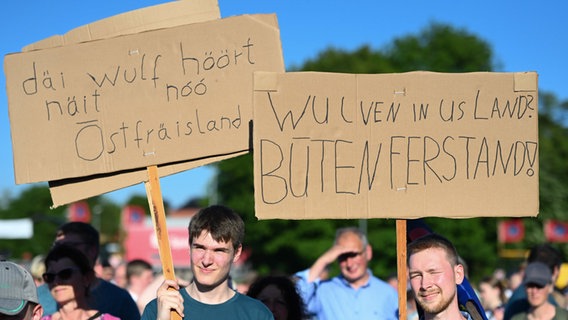 däi wulf höört
näit nóó
Ōstfräisland
WULVEN IN US LAND?
BŪTENFERSTAND!